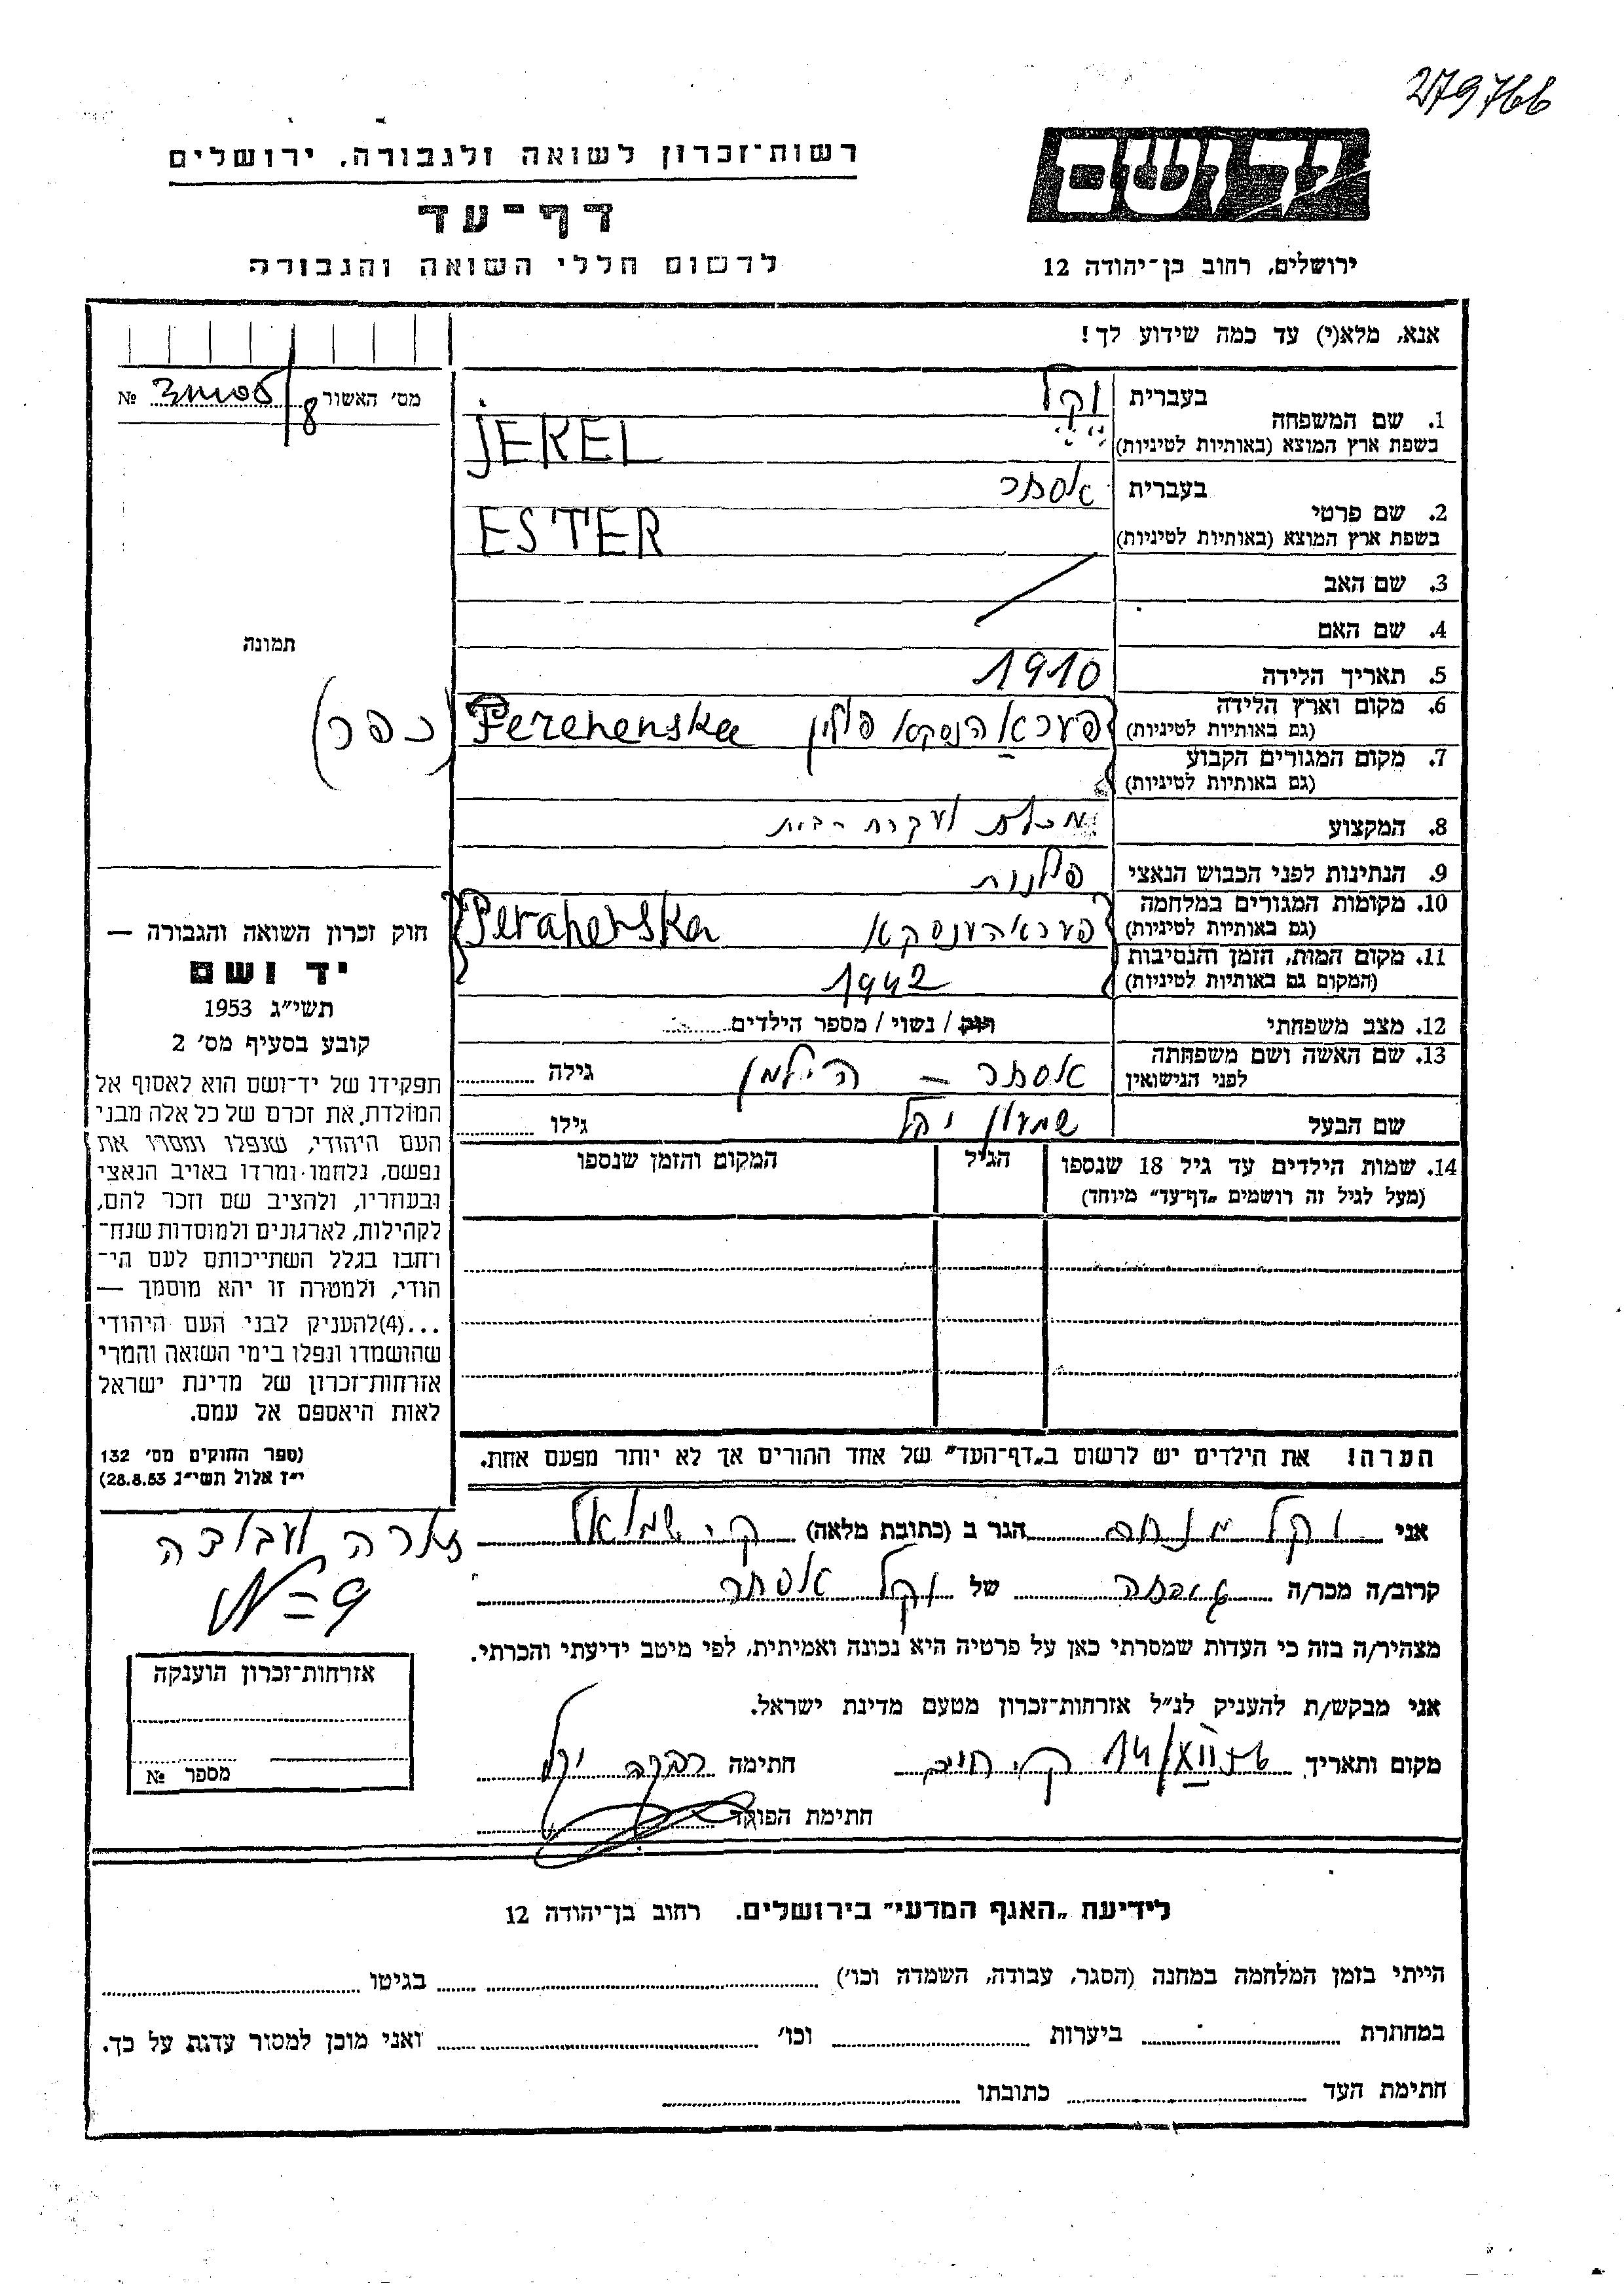 279766
רשות-זכרון לשואה ולגבורה, ירושלים
דף-עד
לרשום חללי השואה והגבורה
יד ושם
ירושלים, רחוב בן-יהודה 12
אנא, מלא(י) עד כמה שידוע לך!
מס' האשור 8 №
1. שם המשפחה
בעברית יקל
בשפת ארץ המוצא (באותיות לטיניות) JEKEL
2. שם פרטי
בעברית אסתר
בשפת ארץ המוצא (באותיות לטיניות) ESTER
3. שם האב
4. שם האם
תמונה
5. תאריך הלידה 1910
6. מקום וארץ הלידה
(גם באותיות לטיניות) פעראהנסקא פולין Perehenska (כפר)
7. מקום המגורים הקבוע
(גם באותיות לטיניות)
8. המקצוע ועקרת הבית
9. הנתינות לפני הכבוש הנאצי פולנית
10. מקומות המגורים במלחמה
(גם באותיות לטיניות) פעראהענסקא Perahenska
11. מקום המות, הזמן והנסיבות
(המקום גם באותיות לטיניות) 1942
12. מצב משפחתי רווק / נשוי / מספר הילדים
13. שם האשה ושם משפחתה
לפני הנישואין אסתר – הילמן גילה
שם הבעל שמעון יקל גילו
14. שמות הילדים עד גיל 18 שנספו הגיל המקום והזמן שנספו
(מעל לגיל זה רושמים "דף-עד" מיוחד)
חוק זכרון השואה והגבורה —
יד ושם
תשי"ג 1953
קובע בסעיף מס' 2
תפקידו של יד-ושם הוא לאסוף אל
המולדת את זכרם של כל אלה מבני
העם היהודי, שנפלו ומסרו את
נפשם, נלחמו ומרדו באויב הנאצי
ובעוזריו, ולהציב שם וזכר להם,
לקהילות, לארגונים ולמוסדות שנח-
רבו בגלל השתייכותם לעם הי-
הודי, ולמטרה זו יהא מוסמך —
...(4) להעניק לבני העם היהודי
שהושמדו ונפלו בימי השואה והמרי
אזרחות-זכרון של מדינת ישראל
לאות היאספם אל עמם.
(ספר החוקים מס' 132
י"ז אלול תשי"ג 28.8.53)
הערה! את הילדים יש לרשום ב"דף-העד" של אחד ההורים אך לא יותר מפעם אחת.
אני יקל הגר ב (כתובת מלאה) ק. שמואל
קרוב/ה מכר/ה של יקל אסתר
מצהיר/ה בזה כי העדות שמסרתי כאן על פרטיה היא נכונה ואמיתית, לפי מיטב ידיעתי והכרתי.
אני מבקש/ת להעניק לנ"ל אזרחות-זכרון מטעם מדינת ישראל.
מקום ותאריך ק. חיים חתימה רבקה יקל
חתימת הפוקד
אזרחות-זכרון הוענקה
מספר №
לידיעת "האגף המדעי" בירושלים. רחוב בן-יהודה 12
הייתי בזמן המלחמה במחנה (הסגר, עבודה, השמדה וכו') בגיטו
במחתרת ביערות וכו' ואני מוכן למסור עדות על כך.
חתימת העד כתובתו